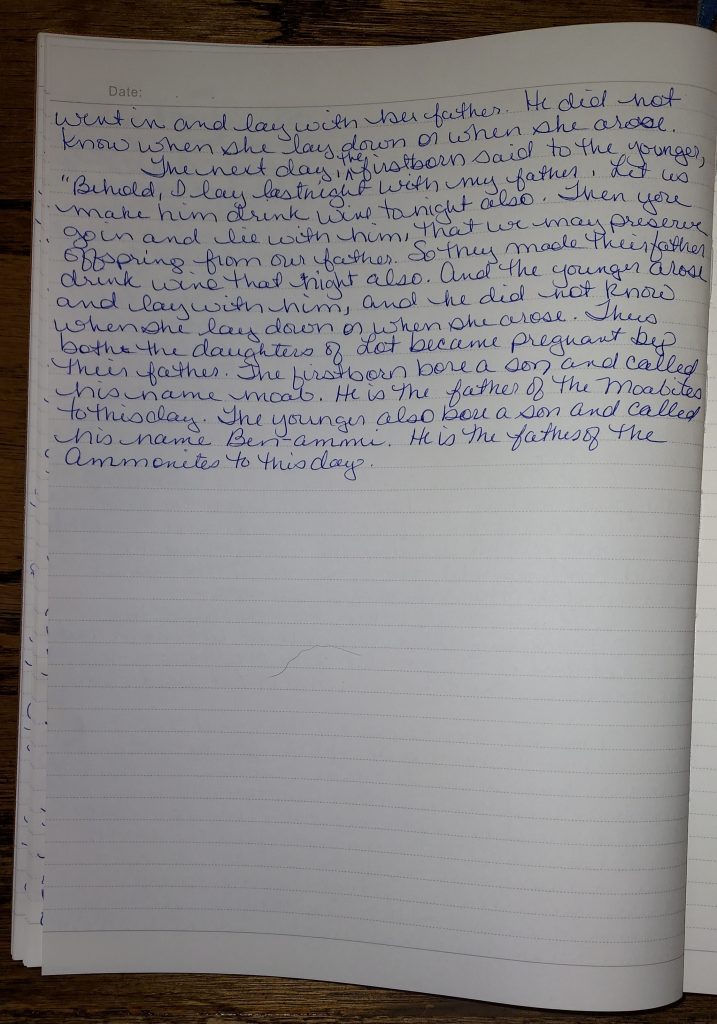 Date:
went in and lay with her father. He did not
know when she lay down or when she arose.
The next day, the firstborn said to the younger,
"Behold, I lay last night with my father. Let us
make him drink wine tonight also. Then you
go in and lie with him, that we may preserve
offspring from our father. So they made their father
drink wine that night also. And the younger arose
and lay with him, and he did not know
when she lay down or when she arose. Thus
both the daughters of Lot became pregnant by
their father. The firstborn bore a son and called
his name Moab. He is the father of the Moabites
to this day. The younger also bore a son and called
his name Ben-ammi. He is the father of the
Ammonites to this day.